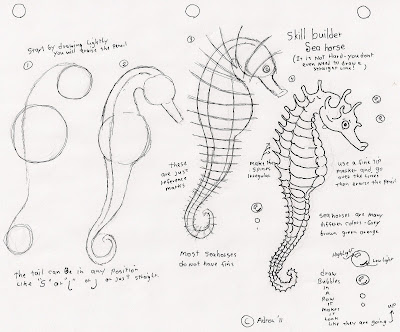 Start by drawing lightly
you will erase the pencil
Skill builder
Sea horse
(It is Not Hard - you dont
even Need to draw a
straight line!)
1
2
3
4
These
are just
reference
marks
Make the
Spines
irregular
use a fine tip
marker and go
over the lines
then erase the pencil
Most seahorses
do not have fins
The tail can be in any position
Like "S" or "(" or J or just straight.
seahorses are many
different colors - Grey
brown green orange
Highlight
Low light
draw
Bubbles
in
a
Row
it
makes it
look
like they are going
up
© Adron '11